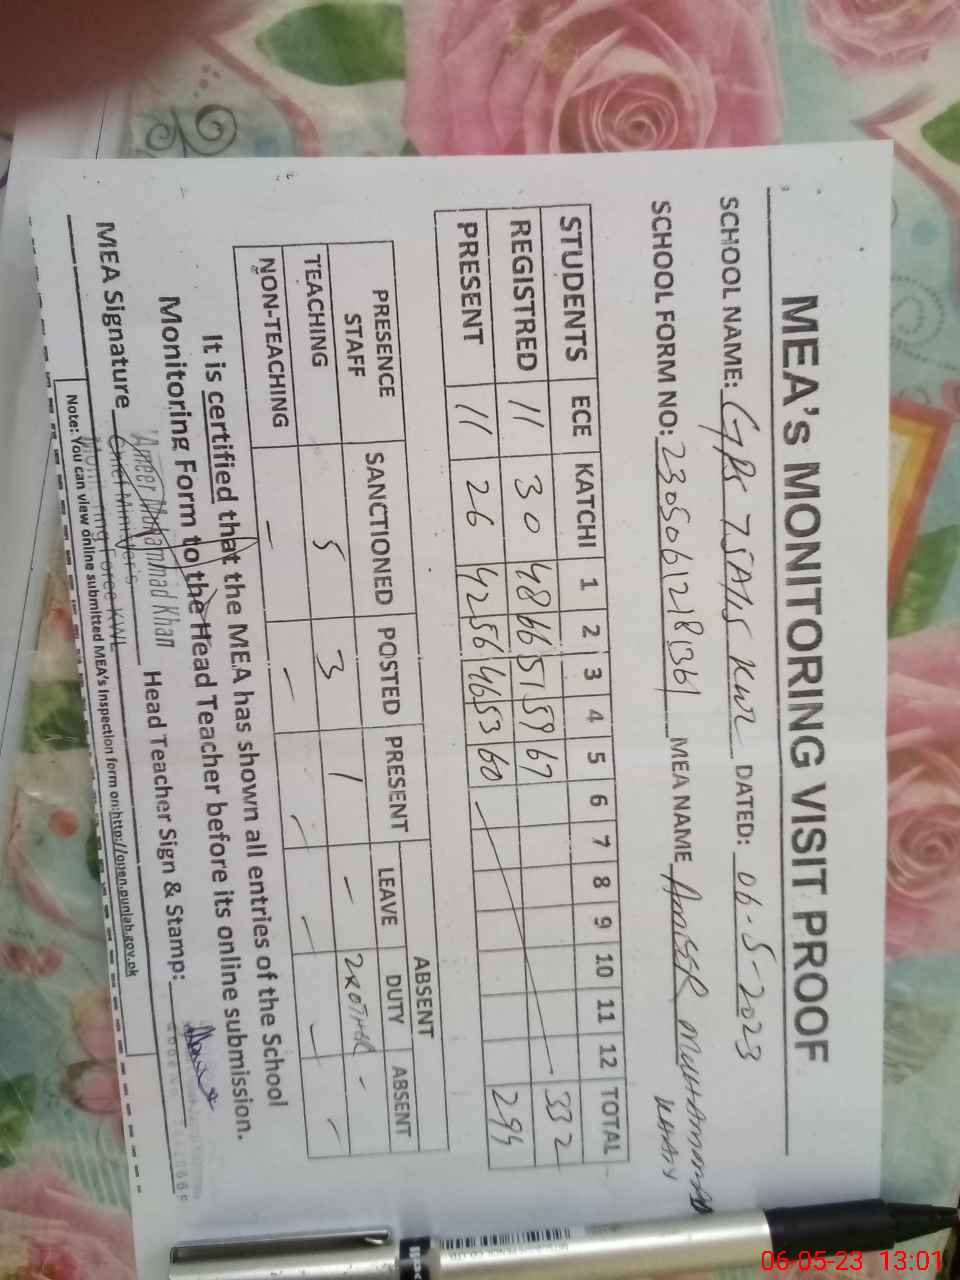 MEA's MONITORING VISIT PROOF
SCHOOL NAME: GPS 75A/15 KWL DATED: 06-5-2023
SCHOOL FORM NO: MEA NAME AMEER MUHAMMAD KHAN
STUDENTS ECE KATCHI 1 2 3 4 5 6 7 8 9 10 11 12 TOTAL
REGISTRED 11 30 48 66 51 59 67 332
PRESENT 11 26 42 56 46 53 60 294
PRESENCE STAFF SANCTIONED POSTED PRESENT ABSENT
LEAVE DUTY ABSENT
TEACHING 5 3 1 - 2 OTHER -
NON-TEACHING - - - - - -
It is certified that the MEA has shown all entries of the School
Monitoring Form to the Head Teacher before its online submission.
MEA Signature Ameer Mohammad Khan Head Teacher Sign & Stamp:
Chief Minister's
Monitoring Force KWL
Note: You can view online submitted MEA's Inspection form on:http://open.punjab.gov.pk
06-05-23 13:01